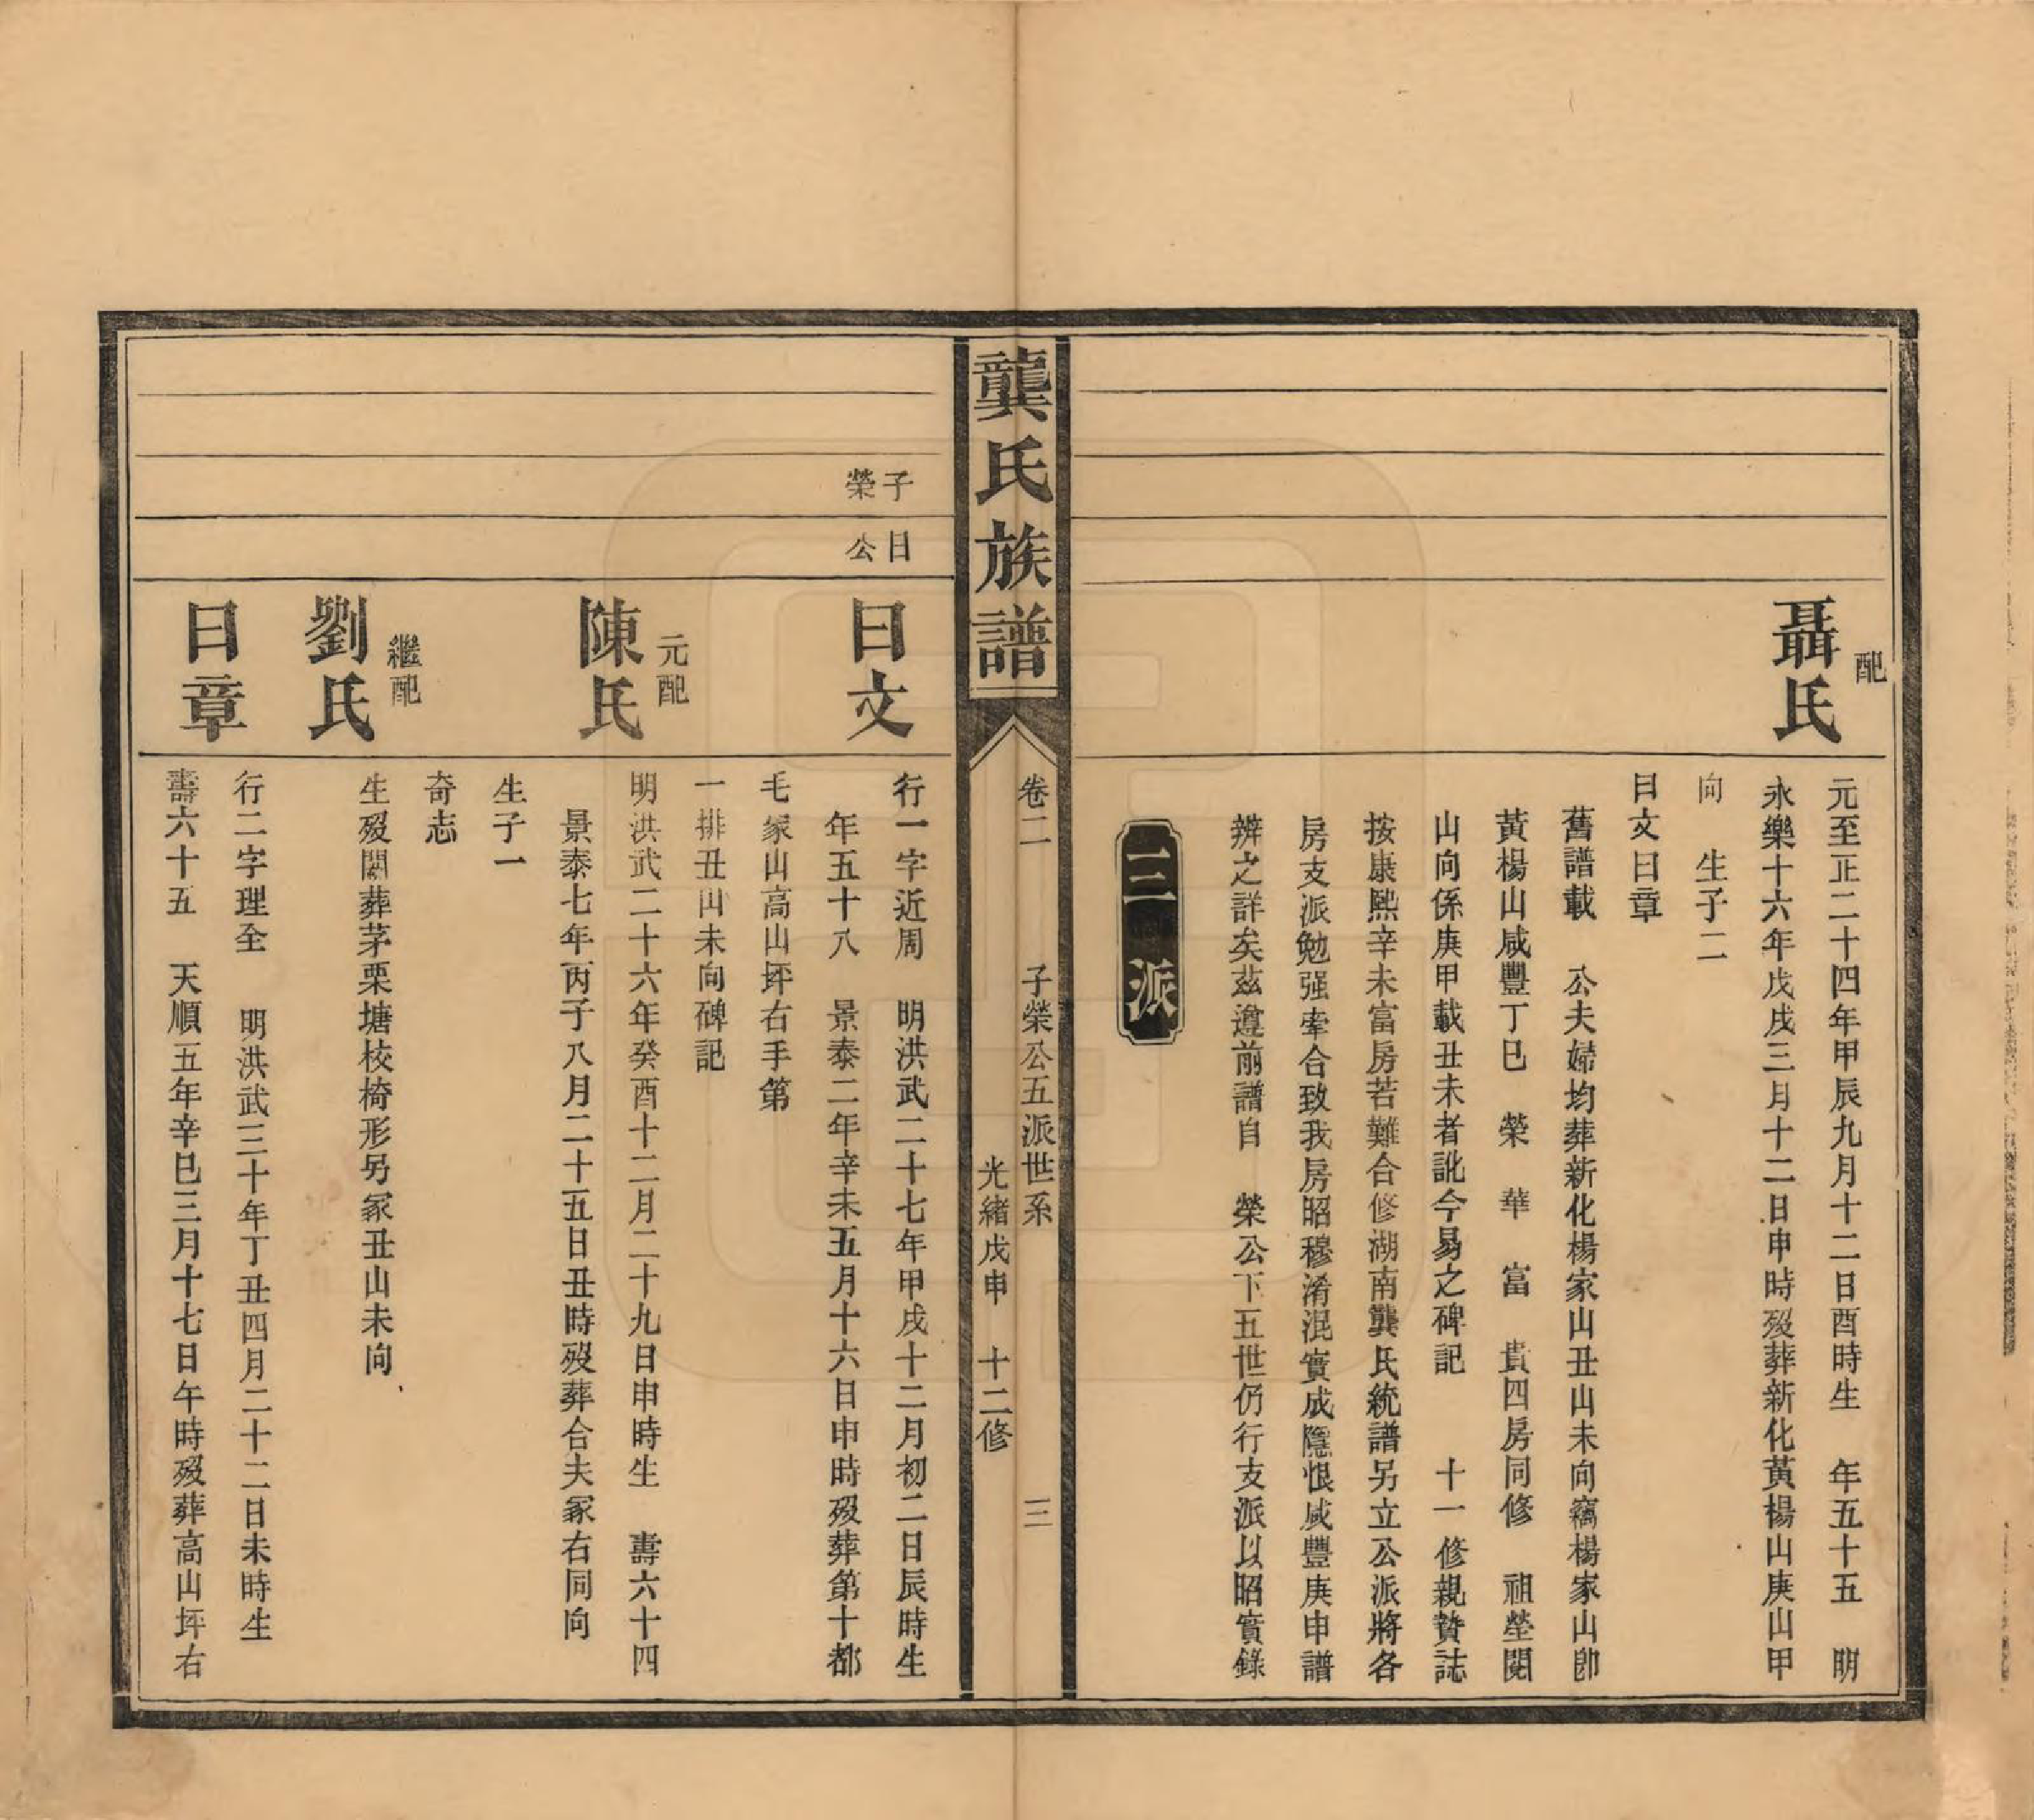 配
聶氏
元至正二十四年甲辰九月十二日酉時生　年五十五　明
永樂十六年戊戌三月十二日申時歿葬新化黃楊山庚山甲
向　生子二
日文日章
舊譜載　公夫婦均葬新化楊家山丑山未向竊楊家山卽
黃楊山咸豐丁巳　榮　華　富　貴四房同修　祖塋閱
山向係庚甲載丑未者訛今易之碑記　十一修親贊誌
按康熙辛未富房若難合修湖南龔氏統譜另立公派將各
房支派勉强牽合致我房昭穆淆混實成隱恨咸豐庚申譜
辨之詳矣茲遵前譜自　榮公下五世仍行支派以昭實錄
三派
龔氏族譜
卷二　子榮公五派世系　三
光緒戊申　十二修
子日
榮公
日文
行一字近周　明洪武二十七年甲戌十二月初二日辰時生
年五十八　景泰二年辛未五月十六日申時歿葬第十都
毛家山高山坪右手第
一排丑山未向碑記
元配
陳氏
明洪武二十六年癸酉十二月二十九日申時生　壽六十四
景泰七年丙子八月二十五日丑時歿葬合夫冢右同向
生子一
奇志
繼配
劉氏
生歿闕葬茅栗塘校椅形另冢丑山未向
日章
行二字理全　明洪武三十年丁丑四月二十二日未時生
壽六十五　天順五年辛巳三月十七日午時歿葬高山坪右